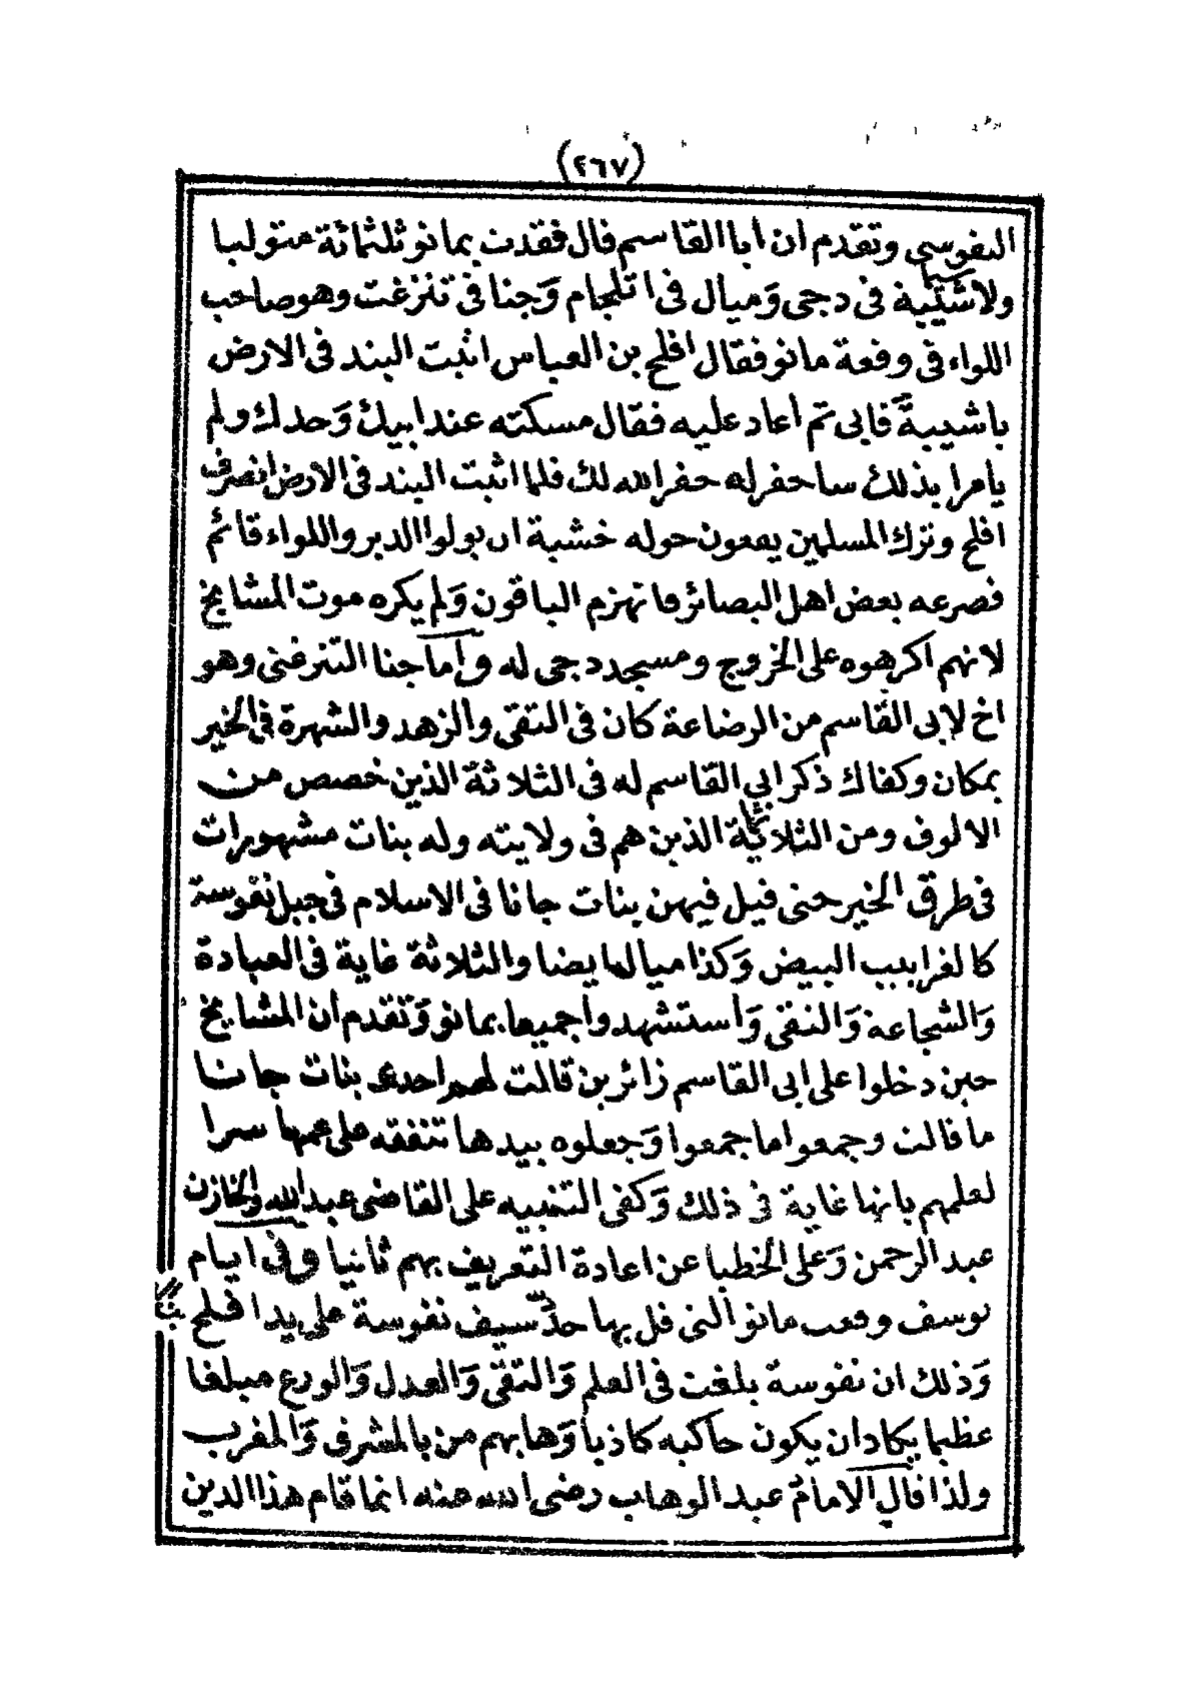 (٢٦٧)
النفوسى وتقدم ان ابا القاسم قال فقدت بمانو ثلثمائة متوليا
ولا شيبة فى دجى وَميال فى اتلجام وَجنا فى تنزغت وهو صاحب
اللواء فى وقعة مانو فقال افلح بن العباس اثبت البند فى الارض
باشيبة فابى ثم اعاد عليه فقال مسكته عند ابيك وَجدك ولم
يامرا بذلك ساحفر له حفر الله لك فلما اثبت البند فى الارض انصرف
افلح وترك المسلمين يقعون حوله خشية ان يولوا الدبر واللواء قائم
فصرعه بعض اهل البصائر فانهزم الباقون وَلم يكره موت المشايخ
لانهم اكرهوه على الخروج ومسجد دجى له وَاما جنا التنزغتى وهو
اخ لابى القاسم من الرضاعة كان فى التقى والزهد والشهرة فى الخير
بمكان وكفاك ذكر ابي القاسم له فى الثلاثة الذين خصص من
الالوف ومن الثلاثمائة الذين هم فى ولايته وله بنات مشهورات
فى طرق الخير حتى قيل فيهن بنات جانا فى الاسلام فى جبل نفوسة
كالغرابيب البيض وَكذا ميال ايضا والثلاثة غاية فى العبادة
وَالشجاعة وَالتقى وَاستشهدوا جميعا بمانو وَتقدم ان المشايخ
حين دخلوا على ابى القاسم زائرين قالت لهم احدى بنات جانا
ما قالت وجمعوا ما جمعوا وَجعلوه بيدها تنفقه على عمها سرا
لعلمهم بانها غاية فى ذلك وَكفى التنبيه على القاضى عبد الله والخازن
عبد الرحمن وَعلى الخطبا عن اعادة التعريف بهم ثانيا وفى ايام
يوسف وقعت مانو التى فل بها حدّ سيف نفوسة على يد افلح
وَذلك ان نفوسة بلغت فى العلم وَالتقى وَالعدل وَالورع مبلغا
عظيما يكاد ان يكون حاكيه كاذبا وَهابهم من بالمشرق وَالمغرب
ولذا قال الامام عبد الوهاب رضى الله عنه انما قام هذا الدين